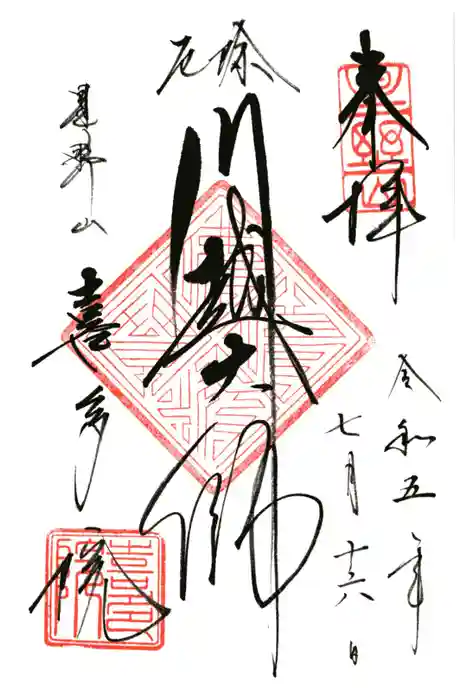 奉拝
令和五年
七月十六日
厄除
川越大師
星野山
喜多院
喜多院